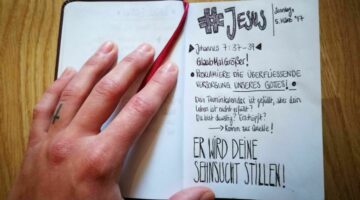 #JESUS
Sonntag
5. März '17
Johannes 7:37-39
Glaub Mal Größer!
PROKLAMIERE DIE ÜBERFLIESSENDE
VERSORGUNG UNSERES GOTTES!
Dein Terminkalender ist gefüllt, aber dein
Leben ist nicht gefüllt?
Du bist durstig? Erschöpft?
→ Komm zur Quelle!
ER WIRD DEINE
SEHNSUCHT STILLEN!